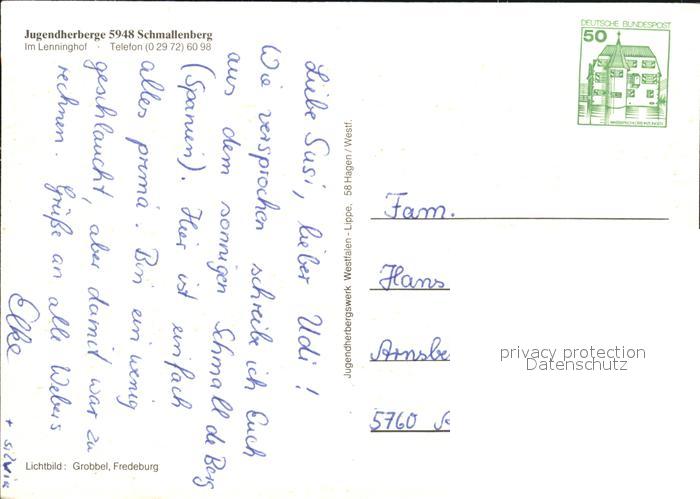 Jugendherberge 5948 Schmallenberg
Im Lenninghof · Telefon (0 29 72) 60 98
Liebe Susi, lieber Udi!
Wie versprochen schreibe ich Euch
aus dem sonnigen Schmalle de Berg
(Spanien). Hier ist einfach
alles prima. Bin ein wenig
geschlaucht, aber damit war zu
rechnen. Grüße an alle Webers
Elke
+ silvia
Lichtbild: Grobbel, Fredeburg
Jugendherbergswerk Westfalen-Lippe, 58 Hagen / Westf.
DEUTSCHE BUNDESPOST
50
Fam.
Hans
Arnsbe
5760
privacy protection
Datenschutz